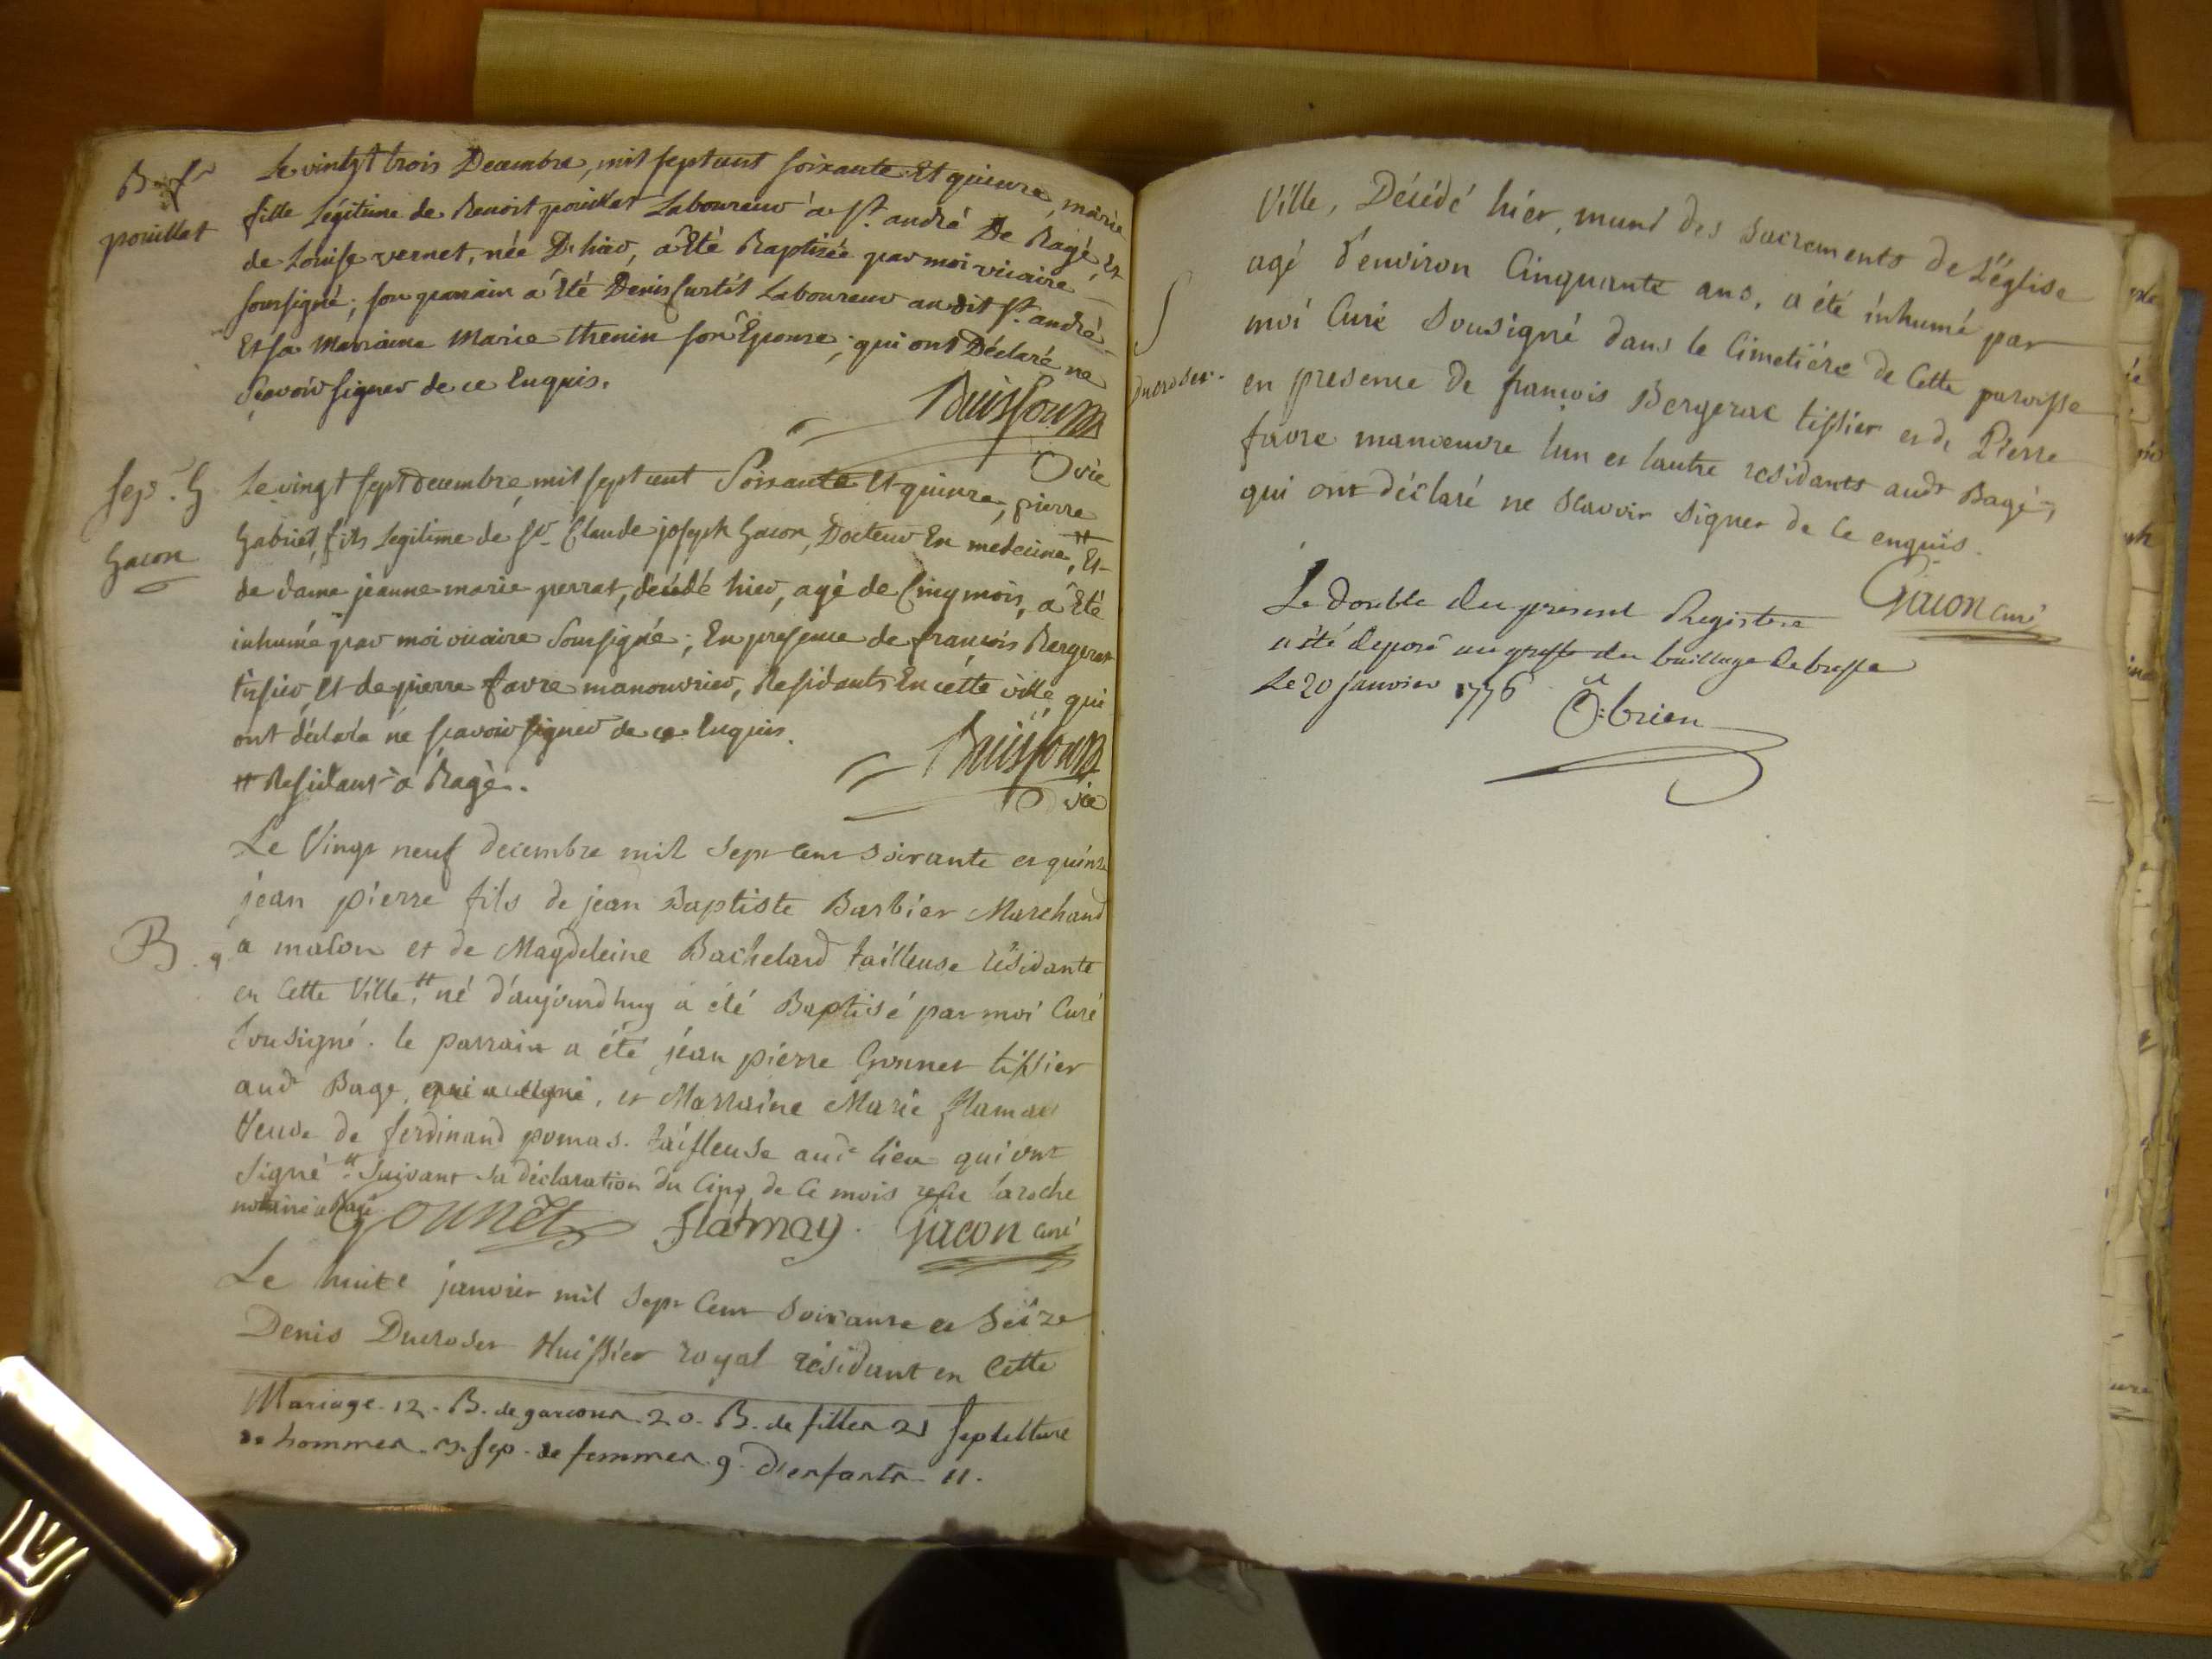 B. f.
pouillat
Le vintgt trois Decembre, mil sept cent soixante Et quinze, marie
fille Légitime de Benoit pouillat Laboureur à St. andré De Bagé, Et
de Louise vernet, née D'hier, a Eté Baptisée par moi vicaire
soussigné; son parrain a Eté Denis Curtil Laboureur audit St. andré
Et sa Marraine Marie thenin son Epouse; qui ont Déclaré ne
sçavoir signer de ce Enquis.
Buisson
vic
sep. G
Gacon
Le vingt sept decembre, mil sept cent Soixante Et quinze, pierre
Gabriel, fils Legitime de sr. Claude joseph Gacon, Docteur En medecine, # Et
de dame jeanne marie perrat, décédé hier, agé de Cinq mois, a Eté
inhumé par moi vicaire Soussigné; En presence de françois Bergerat
tissier, Et de pierre favre manouvrier, Residants En cétte ville, qui
ont déclaré ne sçavoir signer de ce Enquis.
# Residant à Bagé.
Buisson
vic
B. g
Le Vingt neuf decembre mil sept cent soixante et quinze
jean pierre fils de jean Baptiste Barbier Marchand
a macon et de Magdeleine Bachelard tailleuse résidante
en Cette Ville, # né d'aujourd'huy a été Baptisé par moi Curé
sousigné. le parrain a été jean pierre Gounet tissier
audt Bagé, qui a signé, et Marraine Marie
Veuve de ferdinand pomas. tailleuse audt lieu qui ont
signé # suivant sa déclaration du Cinq de Ce mois reçue laroche
notaire a Bagé
Gounet flamay. Gacon curé
Le huite janvier mil sept Cent soixante et Seize
Denis Ducroset Huissier royal résidant en Cette
Mariage. 12. B. de garcons. 20. B. de filles 21 sepulture
de hommes. 3. sep. de femmes. 9. D'enfants. 11.
S
Ducroset.
Ville, Décédé hiér, muni des Sacrements de L'église
agé d'environ Cinquante ans, a été inhumé par
moi Curé Sousigné dans le Cimetiére de Cette paroisse
en presence de françois Bergerac tissier et de Pierre
favre manoeuvre lun et lautre residants audt Bagé,
qui ont déclaré ne scavoir signer de Ce enquis.
Gacon curé
Le double du present Registre
a été deposé au greffe du baillage de bresse
Le 20 janvier 1776
O:brien